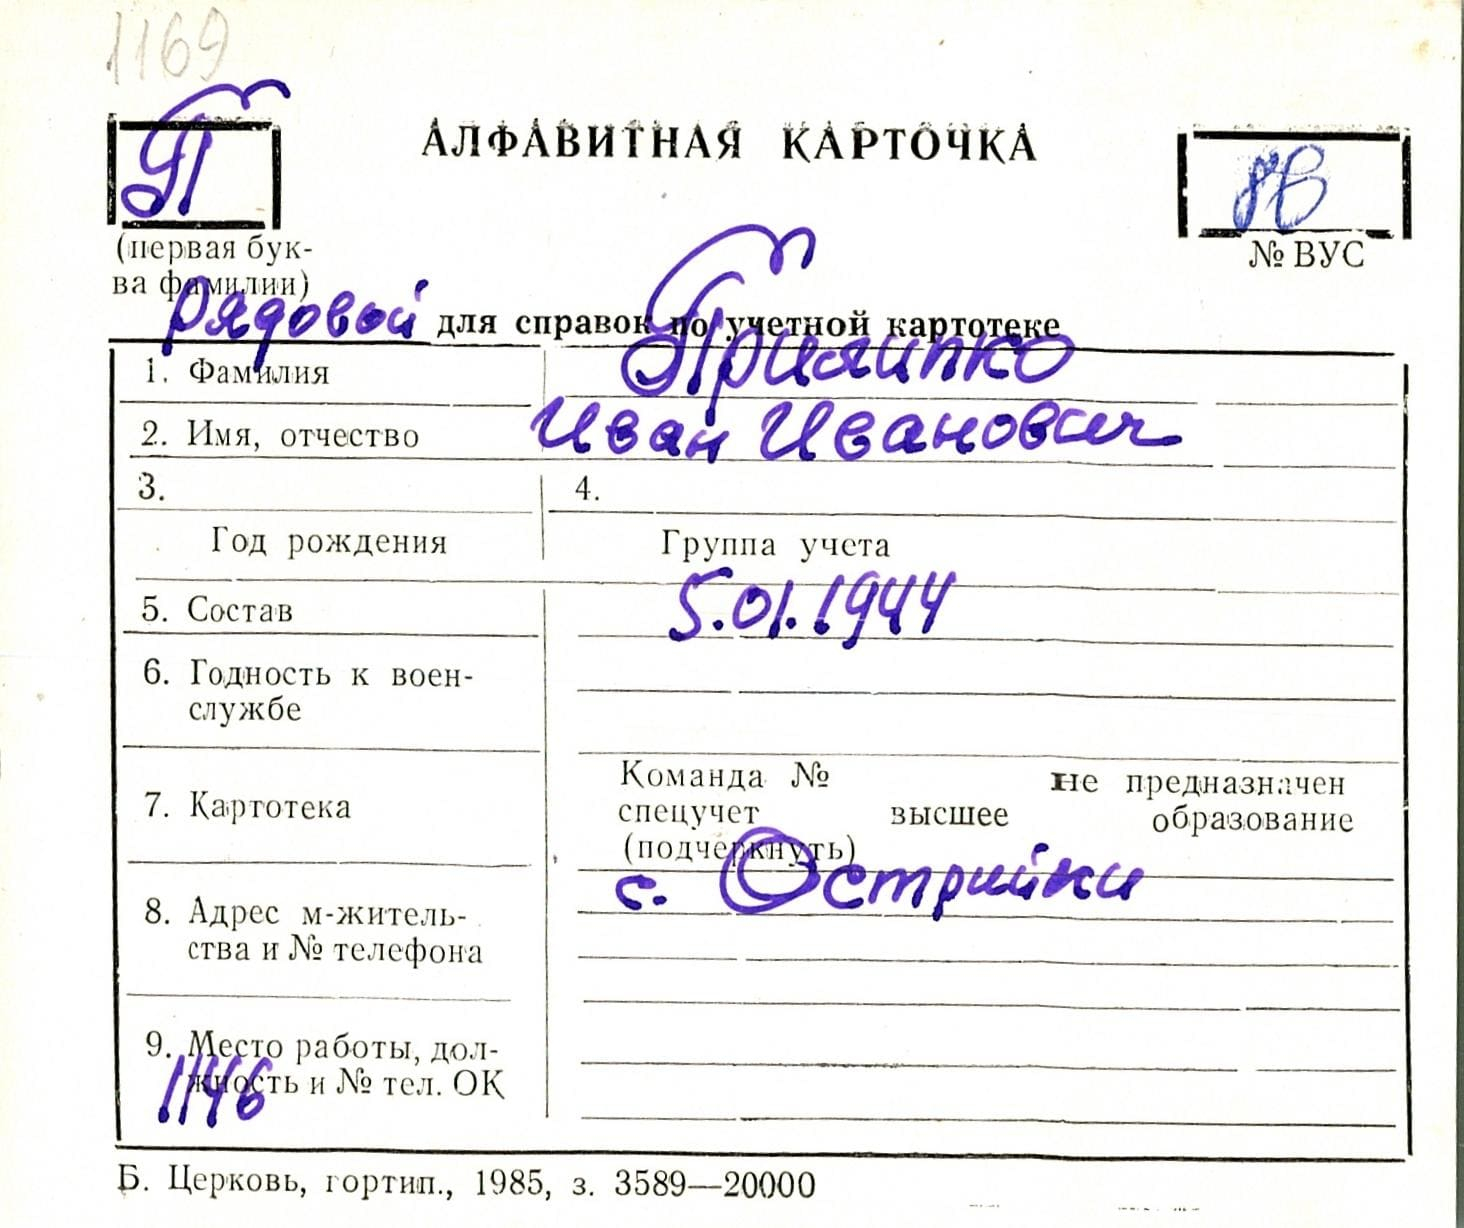 1169
П
АЛФАВИТНАЯ КАРТОЧКА
(первая бук-
ва фамилии)
№ ВУС
рядовой для справок по учетной картотеке
1. Фамилия Прилипко
2. Имя, отчество Иван Иванович
3. 4.
Год рождения Группа учета
5. Состав 5.01.1944
6. Годность к воен-
службе
7. Картотека
Команда № не предназначен
спецучет высшее образование
(подчеркнуть)
с. Острийки
8. Адрес м-житель-
ства и № телефона
9. Место работы, дол-
жность и № тел. ОК
1146
Б. Церковь, гортип., 1985, з. 3589—20000